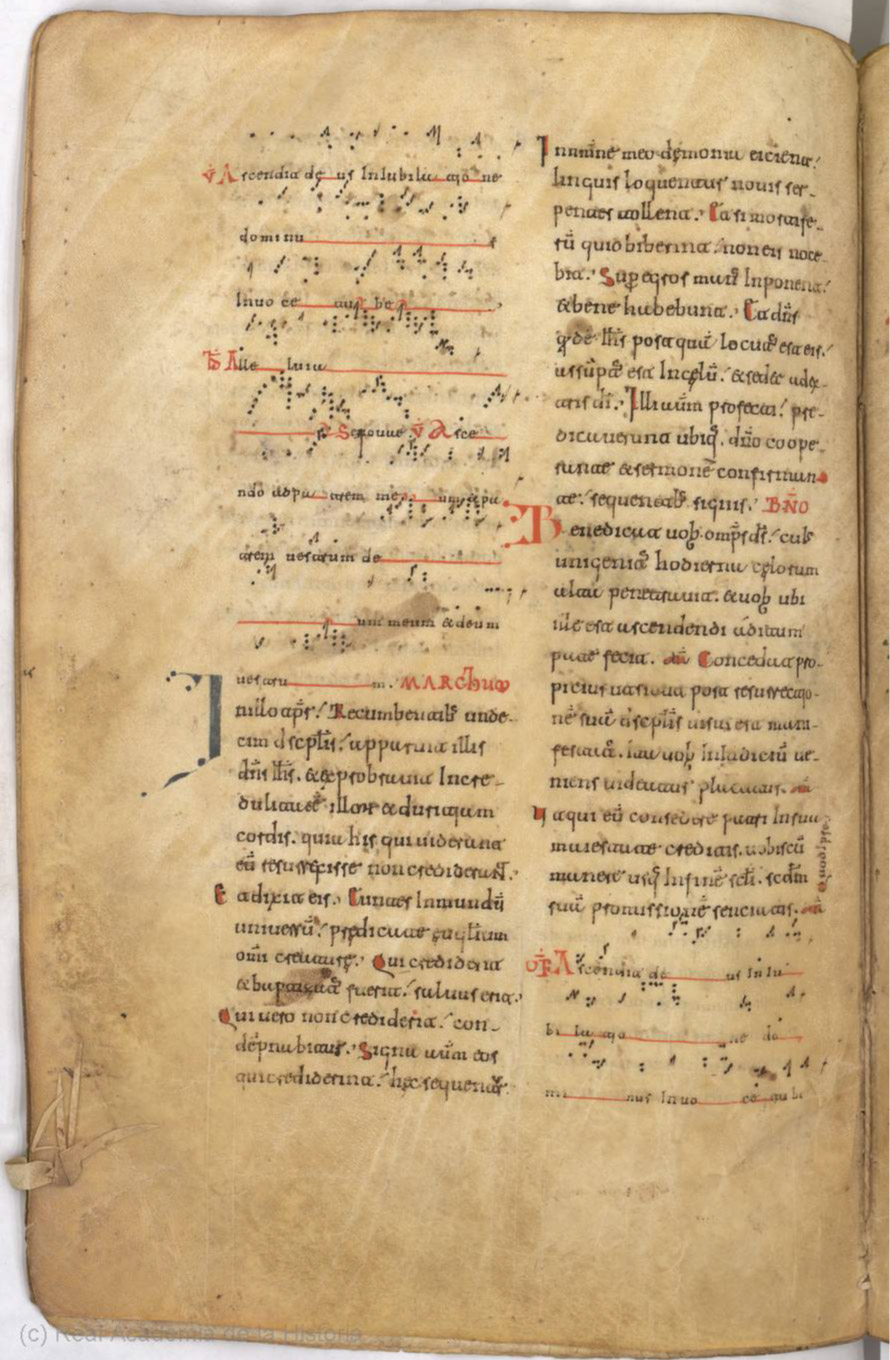 V Ascendit de us In Iubila tio ne
dominu s
In uo ce tube
Alle luia
V Asce
ndo adpa trem me um et pa
trem uestrum de
um meum et deum
uestru m. MARCHUM
In illo tempr̄. Recumbentib; unde
cim discplīs. apparuit illis
dn̄s ihs̄. et exprobrauit Incre
dulitatē illor et duritiam
cordis. quia his qui uiderunt
eū resurrexisse non crediderunt.
Et dixit eis. Euntes In mundū
uniuersū. predicate euglīum
omī creature. Qui crediderit
et baptizatꝰ fuerit. saluus erit.
Qui uero non crediderit. con
dēpnabitur. Signa aūm eos
qui crediderint. hec sequentur.
In nnīne meo demonia eicient.
linguis loquentur nouis ser
pentes tollent. Et si mortife
rū quid biberint. non eis noce
bit. Super egros manꝰ Inponent.
et bene habebunt. Et dn̄s
qdē ihs̄ postquā locutꝰ est eis.
assūptꝰ est In celū. et sedet a dex
tris dī. Illi aūm profecti. pre
dicauerunt ubiq;. dn̄o coope
rante et sermonē confirman
te. sequentib; signis. BN̄O
Benedicat uob omps̄ ds̄. cuiꝰ
unigenitꝰ hodierna celorum
alta penetrauit. et uob ubi
ille est ascendendi aditum
patefecit. am̄ Concedat pro
pitius ut sicut post resurrectio
nē suā discplīs uisus est mani
festatꝰ. ita uob In Iudiciū ue
niens uideatur placatus. am̄
Ut qui eū consedere patri In sua
maiestate creditis. uobiscū
manere usq; In finē scl̄i. scdm̄
suā promissionē sentiatis. am̄
OF Ascendit de us In Iu
bi la tio ne do
mi nus In uo ce tube